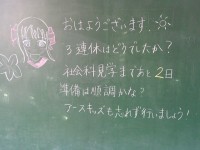 おはようございます。
3連休はどうでしたか？
社会科見学まであと2日。
準備は順調かな？
アースキッズも忘れず行いましょう！